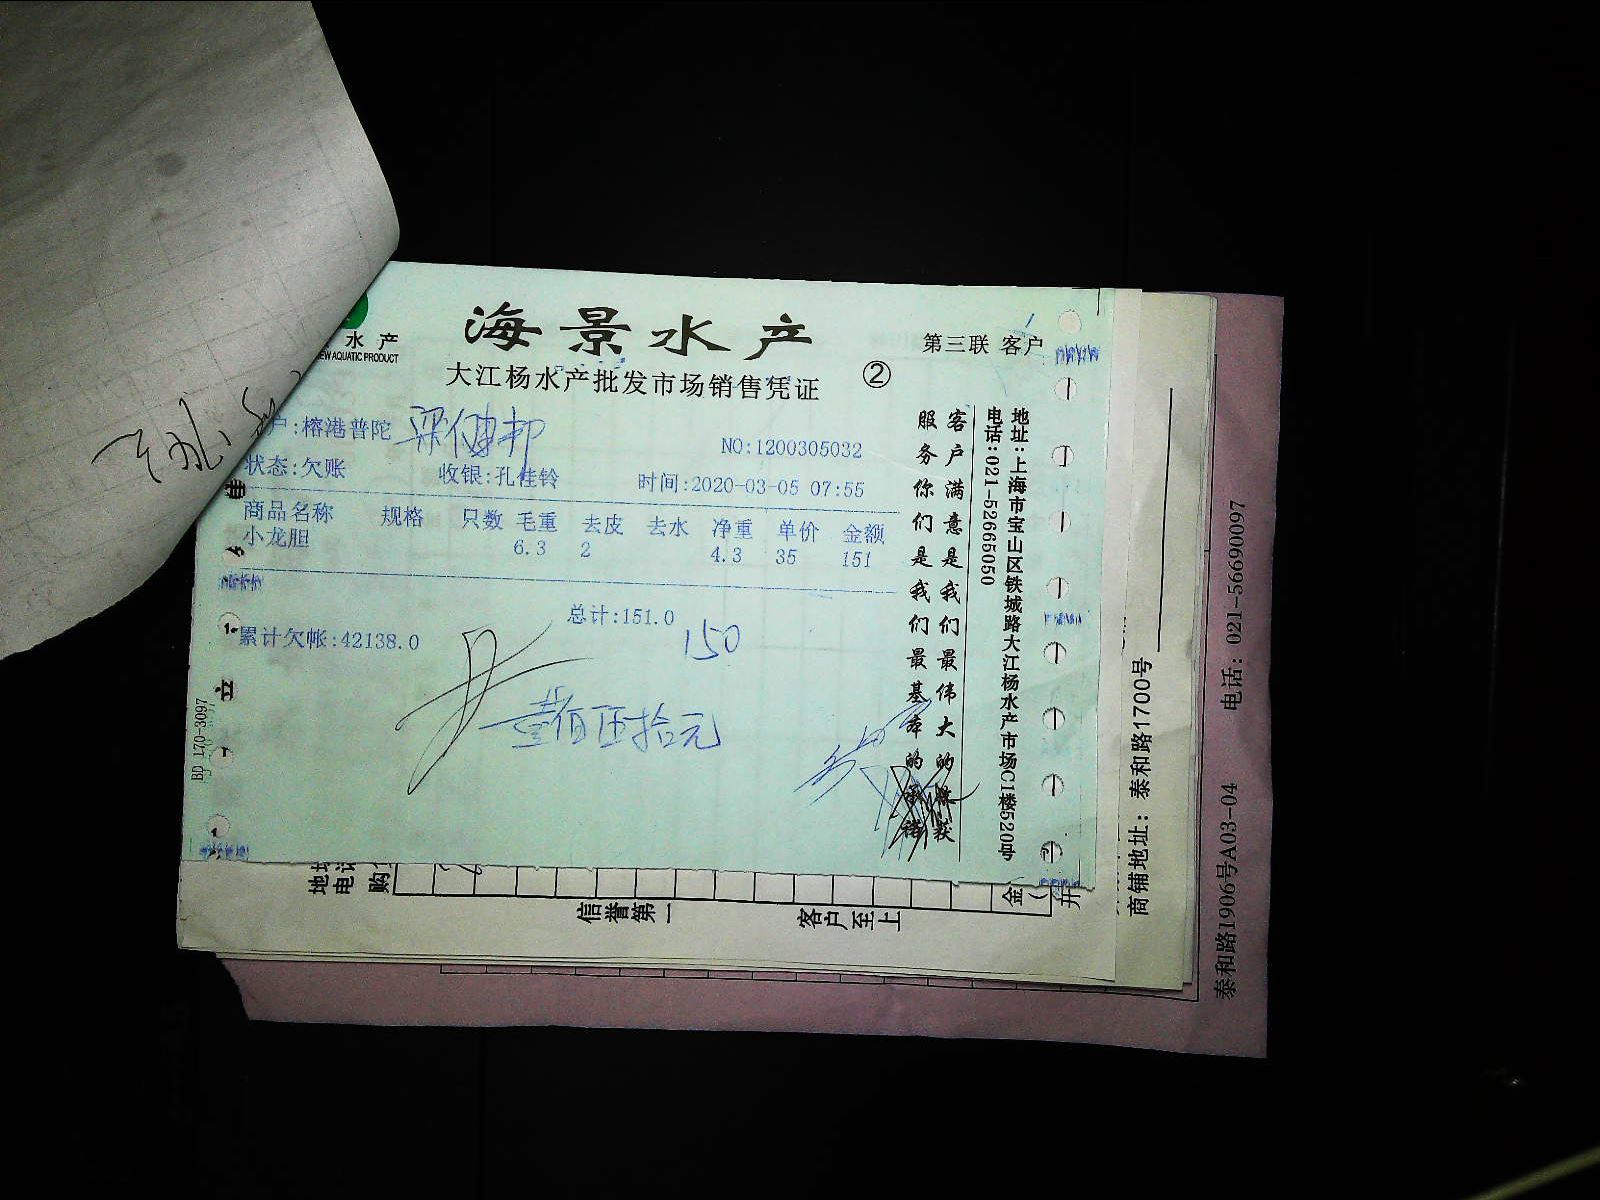 海景水产
水产
EW AQUATIC PRODUCT
大江杨水产批发市场销售凭证
②
第三联 客户
户:榕港普陀
NO:1200305032
状态:欠账
收银:孔佳铃
时间:2020-03-05 07:55
商品名称 规格 只数 毛重 去皮 去水 净重 单价 金额
小龙胆 6.3 2 4.3 35 151
总计:151.0
150
累计欠帐:42138.0
壹佰伍拾元
客户满意是我们最伟大的
服务你们是我们最基本的承诺
地址:上海市宝山区铁城路大江杨水产市场C1楼520号
电话:021-52665050
BD 170-3097
信誉第一
客户至上
商铺地址: 泰和路1700号
泰和路1906号A03-04 电话: 021-56690097